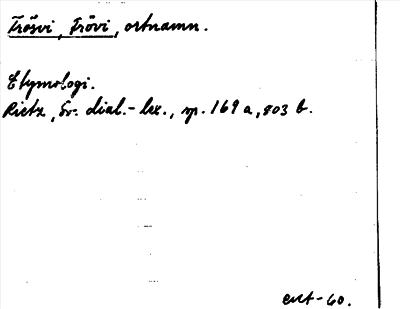 Frösvi, Frövi, ortnamn.
Etymologi.
Rietz, Sv. dial.-lex., sp. 169 a, 803 b.
ert-60.